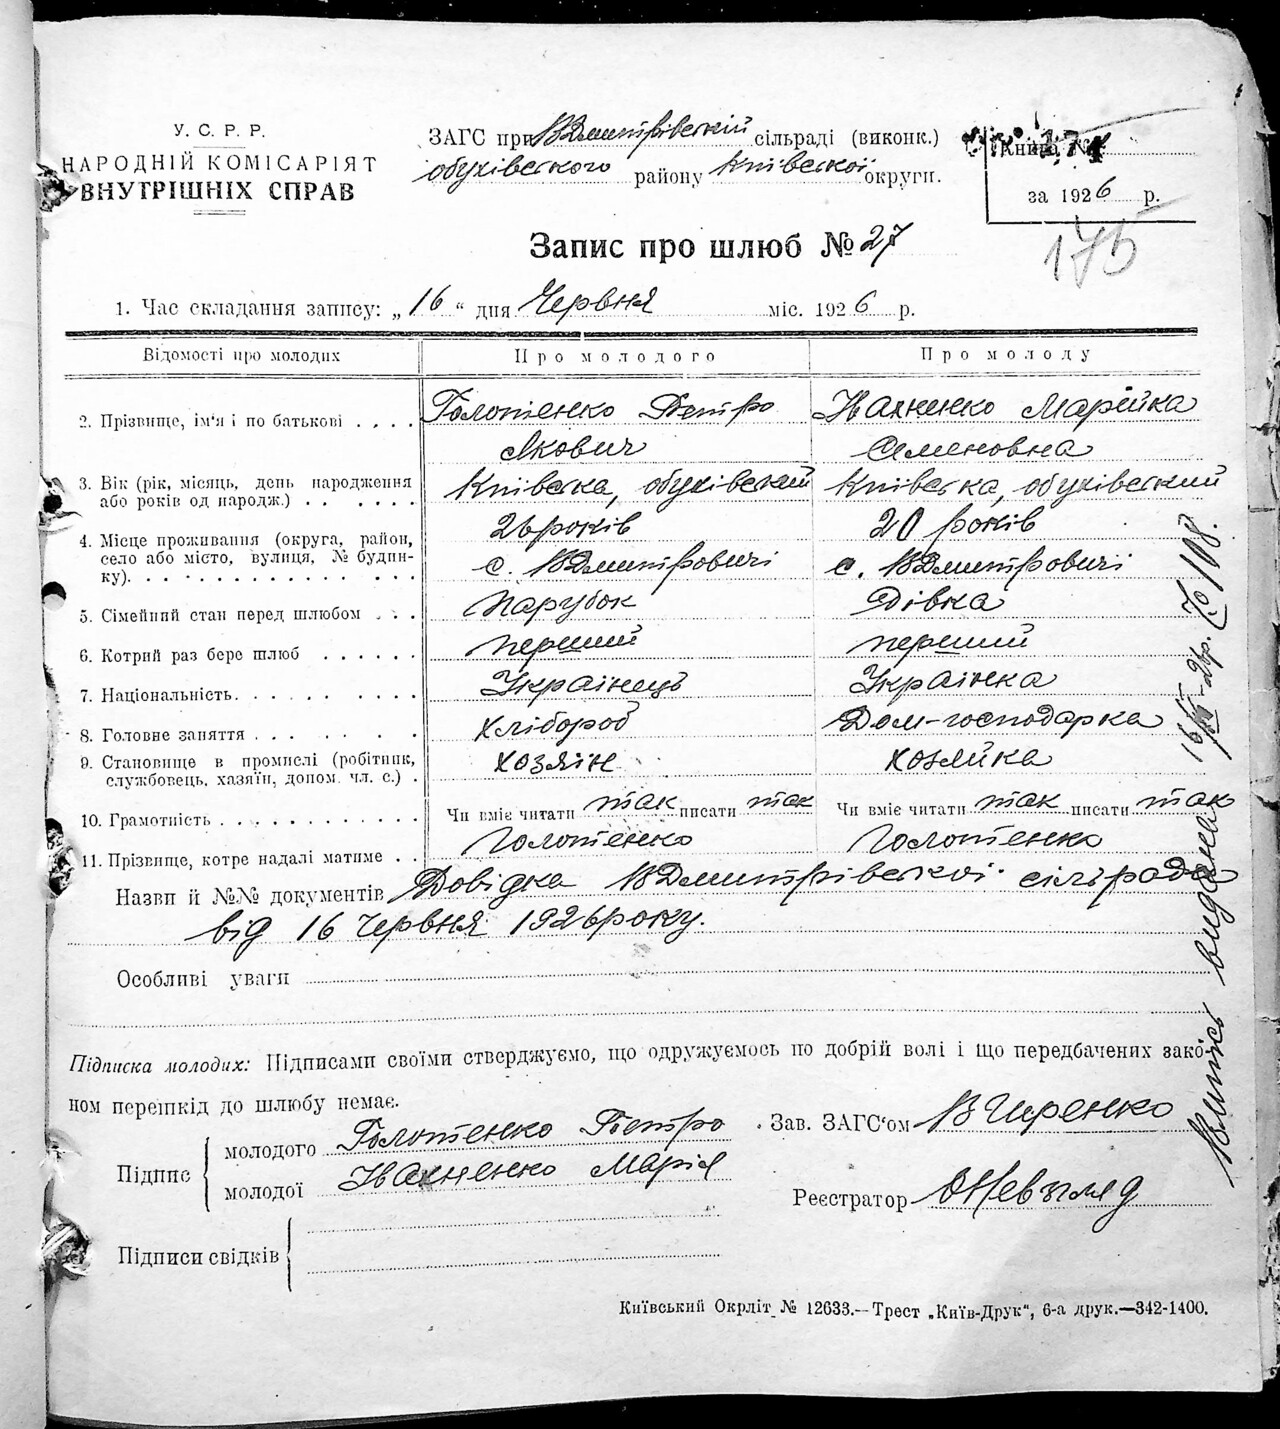 У. С. Р. Р.
НАРОДНІЙ КОМІСАРІЯТ
ВНУТРІШНІХ СПРАВ
ЗАГС при ВДмитрівській сільраді (виконк.)
обухівського району Київської округи.
Книга №
за 1926 р.
175
Запис про шлюб № 27
1. Час складання запису: „16“ дня Червня міс. 1926 р.
Відомості про молодих Про молодого Про молоду
2. Прізвище, ім'я і по батькові . . . . Голотенко Петро Івахненко Марійка
Якович Семеновна
3. Вік (рік, місяць, день народження Київська, обухівський Київська, обухівський
або років од народж.) . . . . . . 26 років 20 років
4. Місце проживання (округа, район,
село або місто, вулиця, № будин- с. ВДмитровичі с. ВДмитровичі
ку). . . . . . . . . . . . . . .
5. Сімейний стан перед шлюбом . . . Парубок Дівка
6. Котрий раз бере шлюб . . . . . . перший перший
7. Національність. . . . . . . . . . Українець Українка
8. Головне заняття . . . . . . . . Хлібороб Дом-господарка
9. Становище в промислі (робітник, хозяін хозяйка
службовець, хазяїн, допом. чл. с.) .
10. Грамотність . . . . . . . . . . . Чи вміє читати так писати так Чи вміє читати так писати так
11. Прізвище, котре надалі матиме . . Голотенко Голотенко
Назви й №№ документів Довідка ВДмитрівської сільради
від 16 Червня 1926 року.
Особливі уваги
Підписка молодих: Підписами своїми стверджуємо, що одружуємось по добрій волі і що передбачених зако-
ном перешкід до шлюбу немає.
Підпис молодого Голотенко Петро
молодої Івахненко Марія
Зав. ЗАГС'ом
Реєстратор
Підписи свідків
Київський Окрліт № 12633.—Трест „Київ-Друк“, 6-а друк.—342-1400.
Випись видана 26р. № 108.